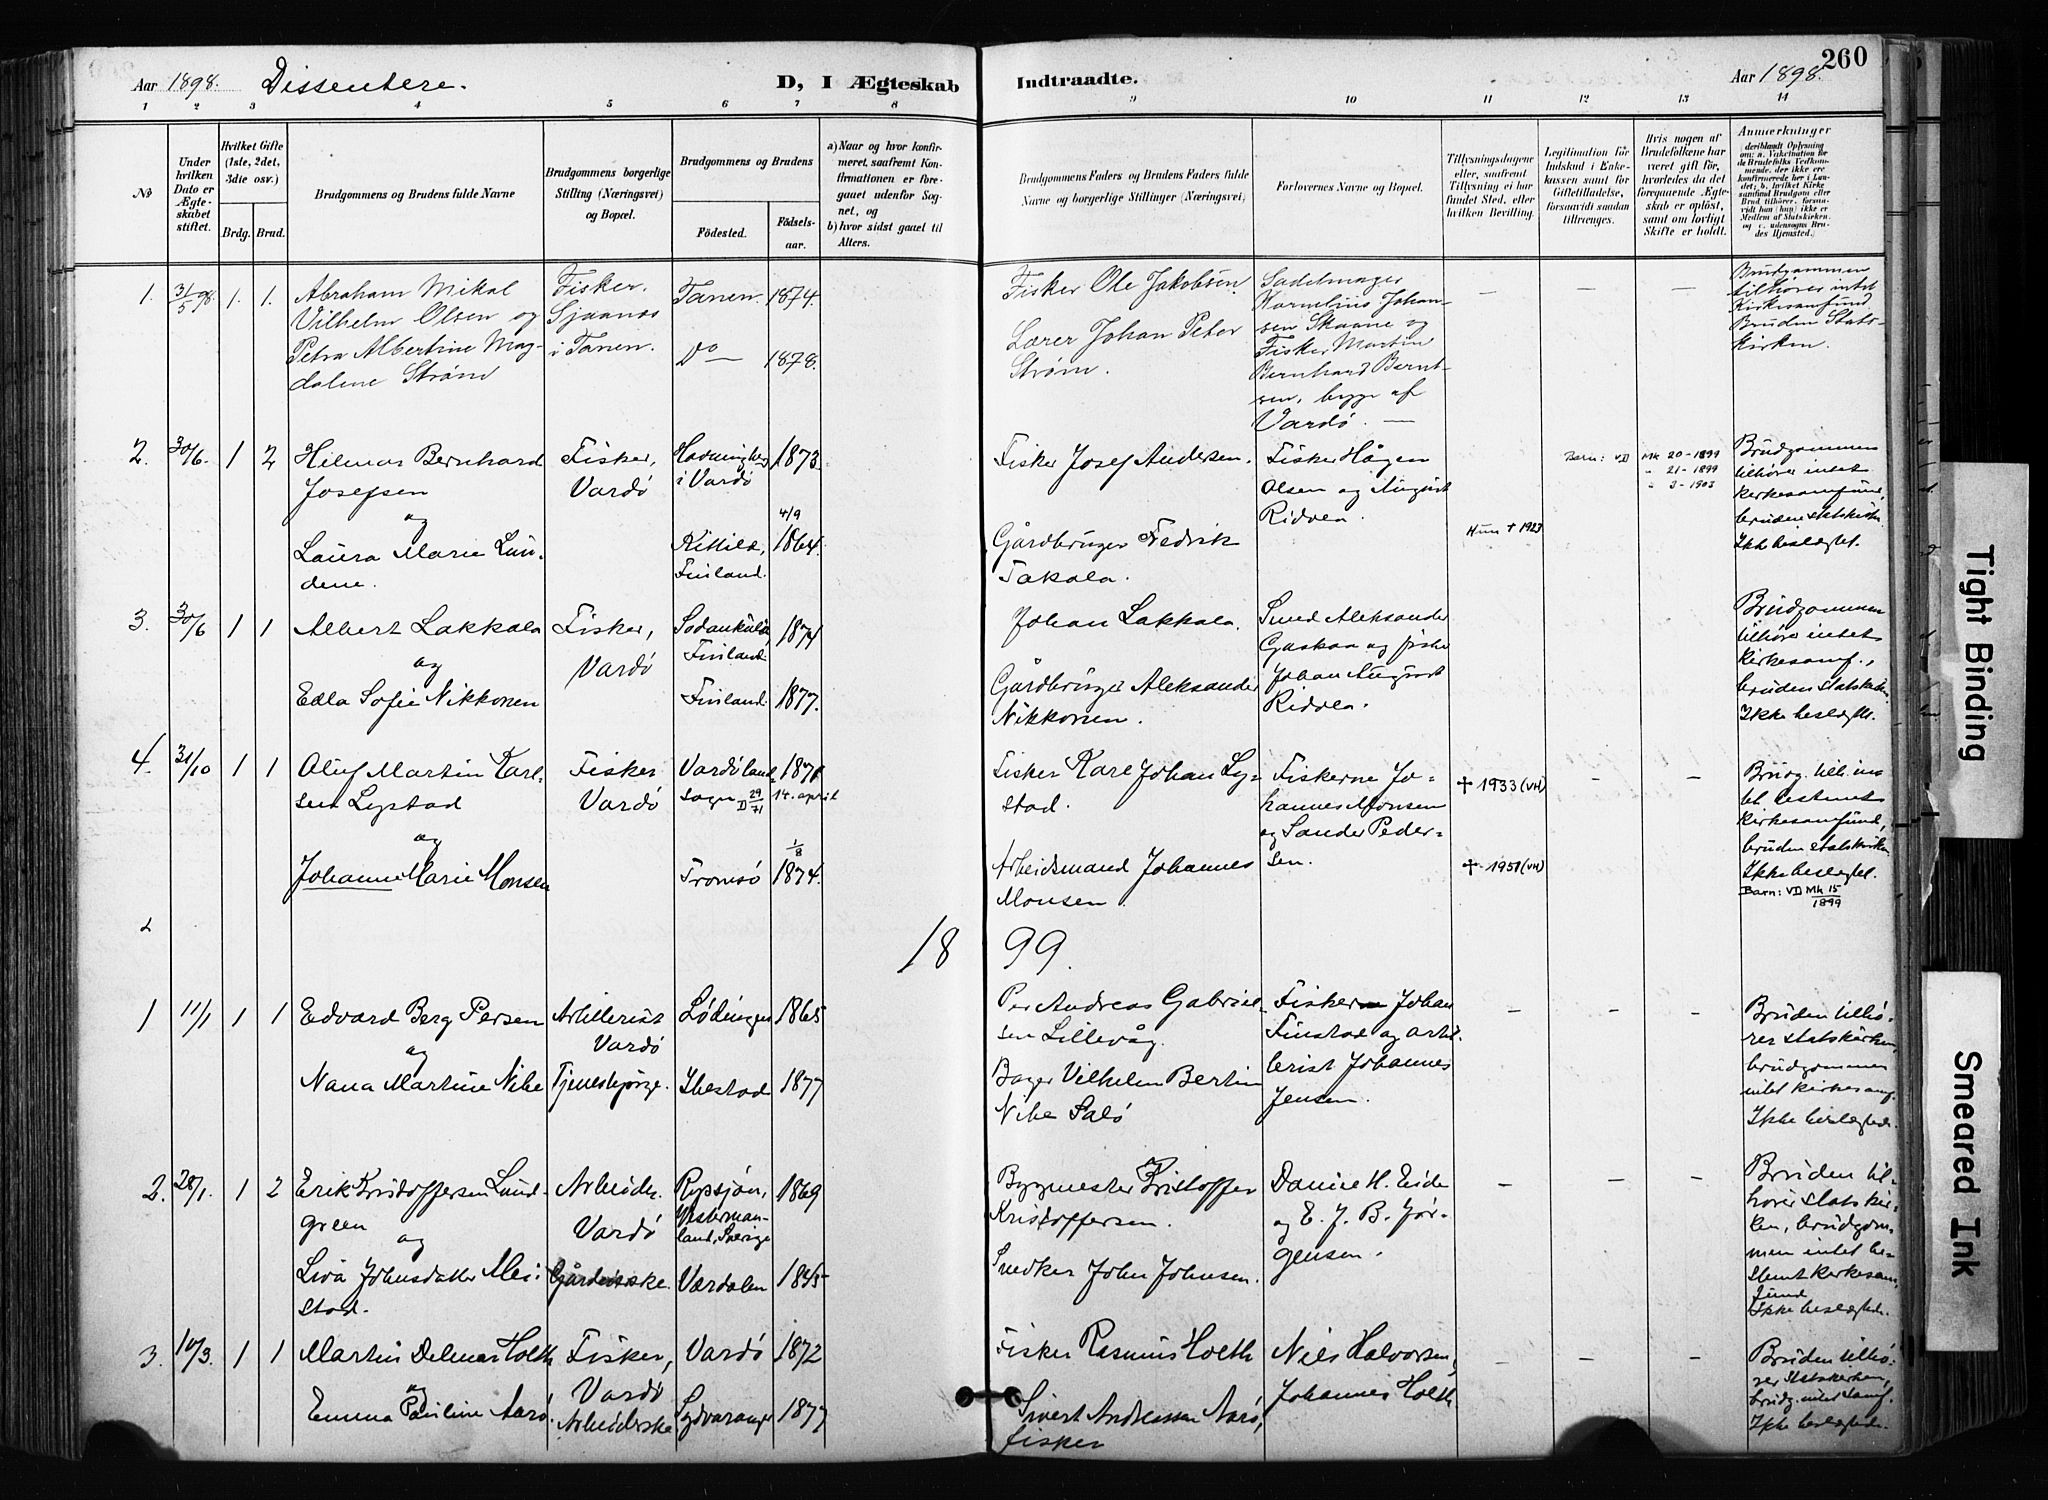 260
Aar 1898. Dissentere. D, I Ægteskab Indtraadte. Aar 1898.
1 2 3 4 5 6 7 8 9 10 11 12 13 14
No
Under hvilken Dato er Ægteskabet stiftet.
Hvilket Gifte (1ste, 2det, 3die osv.)
Brdg. Brud.
Brudgommens og Brudens fulde Navne
Brudgommens borgerlige Stilling (Næringsvei) og Bopæl.
Brudgommens og Brudens
Fødested.
Fødselsaar.
a) Naar og hvor konfirmeret, saafremt Konfirmationen er foregaaet udenfor Sognet, og
b) hvor sidst gaaet til Alters.
Brudgommens Faders og Brudens Faders fulde Navne og borgerlige Stillinger (Næringsvei)
Forlovernes Navne og Bopæl.
Tillysningsdagene eller, saafremt Tillysning ei har fundet Sted, efter hvilken Bevilling.
Legitimation for Indskud i Enkekassen samt for Giftetilladelse, forsaavidt saadan tiltrænges.
Hvis nogen af Brudefolkene har været gift før, hvorledes da det foregaaende Ægteskab er opløst, samt om lovligt Skifte er holdt.
Anmerkninger
1. 31/5 98. 1. 1.
Abraham Mikal
Vilhelm Olsen og
Petra Albertine Mag-
dalene Strøm
Fisker.
Sjaanes
i Tanen.
Tanen. 1874.
Do — 1878.
Fisker Ole Jakobsen.
Lærer Johan Peter
Strøm.
Sadelmager
Kornelius Johan-
sen Skaane og
Fisker Martin
Bernhard Bernt-
sen, begge af
Vardø. —
— — —
Brudgommen
tilhører intet
Kirkesamfund
Bruden Stats-
kirken.
2. 30/6. 1 2
Hilmar Bernhard
Josefsen
og
Laura Marie Lun-
dene.
Fisker,
Vardø
Havningberg
i Vardø
1873.
4/9
Kittilä, 1864.
Finland.
Fisker Josef Andersen.
Gårdbruger Fedrik
Takala.
Fisker Hågen
Olsen og August
Ridola.
Hun † 1923
Barn: VD Mk 20-1899
" 21-1899
" 3-1903
Brudgommen
tilhører intet
kirkesamfund,
bruden statskirken.
Ikke beslægtet.
3. 30/6 1 1
Albert Lakkala
og
Edla Sofie Nikkonen
Fisker,
Vardø
Sodankylä 1874
Finland.
Finland. 1877.
Johan Lakkala.
Gårdbruger Aleksander
Nikkonen.
Smed Aleksander
Gaskaa og fisker
Johan August
Ridola.
Brudgommen
tilhører intet
kirkesamf.,
bruden statskirken.
Ikke beslægtet.
4. 31/10 1 1
Oluf Martin Karl-
sen Lystad
og
Johanne Marie Monsen
Fisker
Vardø
Vardø land- 1871
sogn D 29/71 14. april
1/8
Tromsø 1874.
Fisker Karl Johan Ly-
stad.
Arbeidsmand Johannes
Monsen.
Fiskerne Jo-
hannes Monsen
og Sander Peder-
sen.
† 1933 (VH)
† 1951 (VH)
— —
Brudg. tilh. in-
tet bestemt
kirkesamfund,
bruden statskirken
Ikke beslægtet.
Barn: VD Mk 15/1899
1899.
1 11/1 1 1
Edvard Berg Persen
og
Nana Martine Nibe
Artillerist
Vardø
Tjenestepige.
Lødingen 1865
Ibestad 1877
Per Andreas Gabriel-
sen Lillevåg.
Bager Vilhelm Bertin
Nibe Salø
Fisker Johan
Finstad og artil-
lerist Johannes
Jensen.
— — —
Bruden tilhø-
rer statskirken,
brudgommen
intet kirkesamf.
Ikke beslægtede.
2. 28/1. 1 2
Erik Kristoffersen Lund-
green
og
Liva Johnsdatter Mei-
stad.
Arbeider.
Vardø
Gårdeierske.
Rypsjön, 1869
Vesterman-
land, Sverige
Værdalen 1845
Bygmester Kristoffer
Kristoffersen.
Snedker John Johnsen.
Daniel H. Eide
og E. J. B. Jør-
gensen.
— — —
Bruden til-
hører statskir-
ken, brudgom-
men intet be-
stemt kirkesam-
fund
Ikke beslægtede.
3. 10/3. 1 1
Martin Delmar Holth
og
Emma Pauline Aarø.
Fisker,
Vardø
Arbeiderske
Vardø 1872
Sydvaranger 1877
Fisker Rasmus Holth
Sivert Andreassen Aarø,
fisker
Niels Halvorsen,
Johannes Holth.
— — —
Bruden tilhø-
rer Statskirken,
brudg. intet Samf.
Ikke beslægtede.
Tight Binding
Smeared Ink